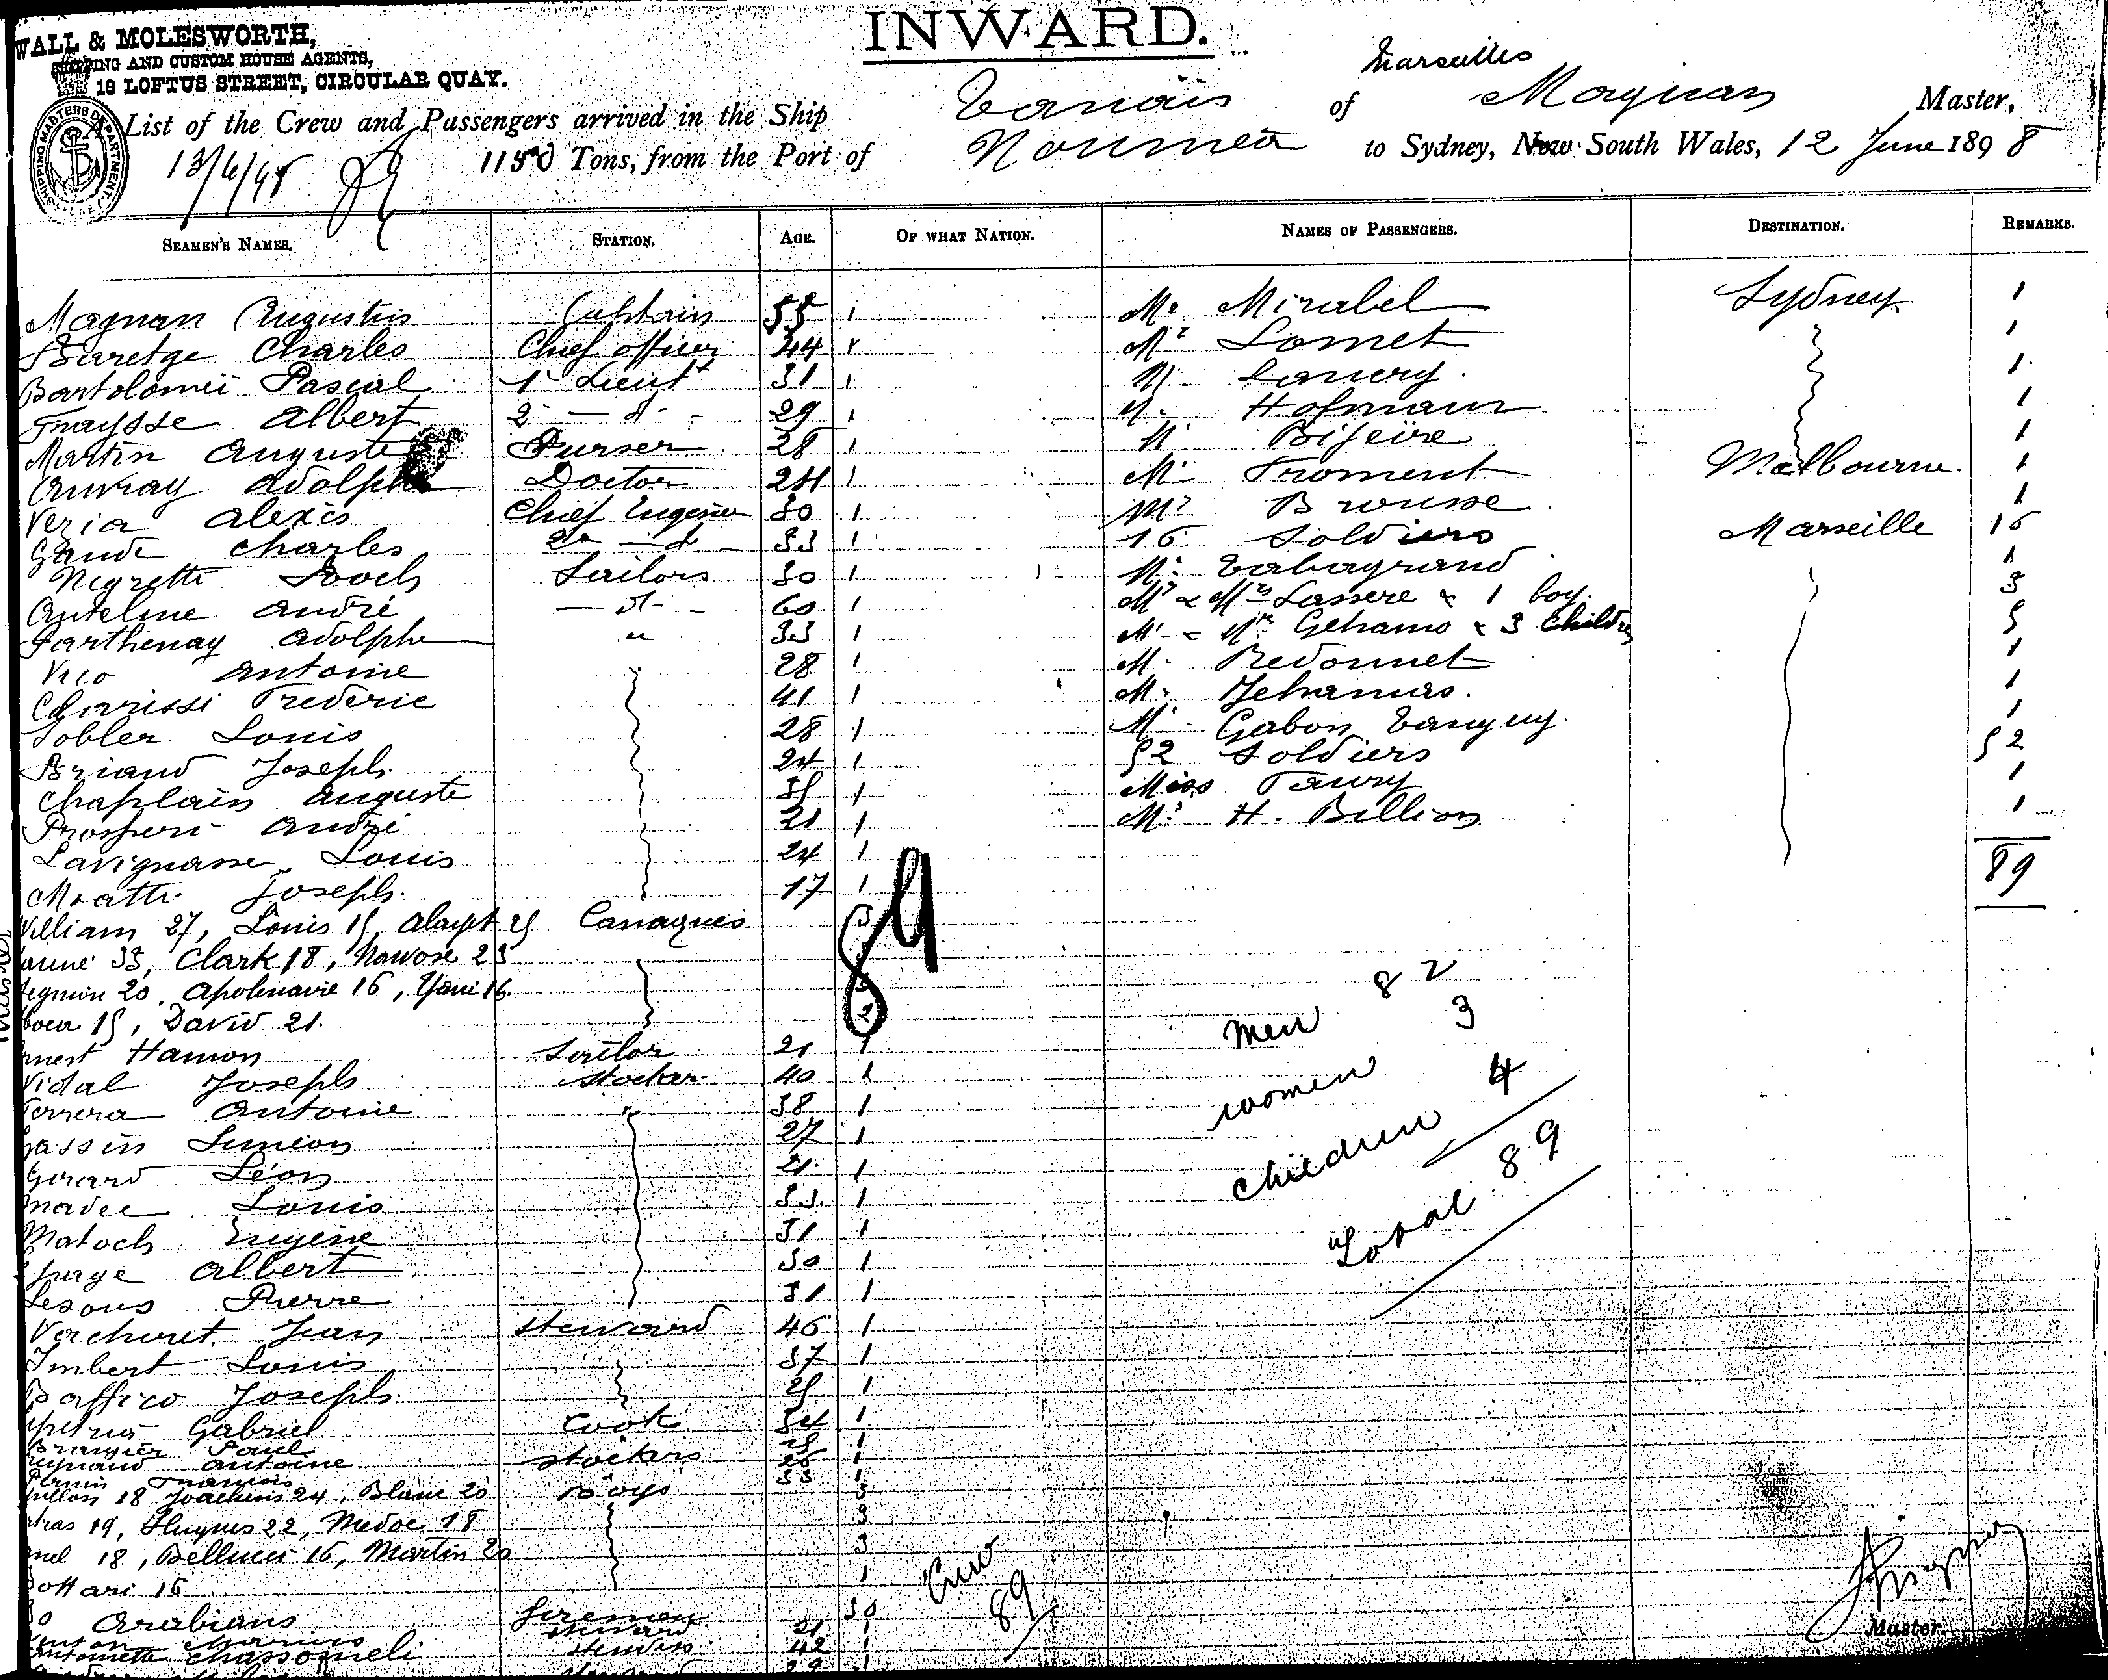 INWARD.
WALL & MOLESWORTH,
SHIPPING AND CUSTOM HOUSE AGENTS,
18 LOFTUS STREET, CIRCULAR QUAY.
SHIPPING MASTERS DEPARTMENT
Marseilles
A List of the Crew and Passengers arrived in the Ship Tanais of Magnan Master,
13/6/98 1150 Tons, from the Port of Noumea to Sydney, New South Wales, 12 June 1898
SEAMEN'S NAMES. STATION. AGE. OF WHAT NATION. NAMES OF PASSENGERS. DESTINATION. REMARKS.
Magnan Augustin Captain 55 1 Mr Mirabel Sydney 1
Baretge Charles Chief officer 44 1 Mr Lomet 1
Bartolomeï Pascal 1 Lieut 31 1 M. Laury 1
Fraysse Albert 2 - d- 29 1 M. Hofmann 1
Martin Auguste Purser 28 1 M. Bijeire 1
Auvray Adolphe Doctor 24 1 M. Froment Melbourne 1
Veria Alexis Chief Engineer 30 1 Mr Brousse 1
Gaude Charles 2d - d 33 1 16 Soldiers Marseille 16
Negretti Roch Sailors 30 1 M. Tabagrand 1
Anteline André - d - 60 1 Mr & Mrs Lassere & 1 boy 3
Parthenay Adolphe " 33 1 M. & Mrs Gehamo & 3 Childre 5
Vico Antoine 28 1 M. Redonnet 1
Clarissi Frederic 41 1 M. Jehannas. 1
Tobler Louis 28 1 M. Gabon Tanguy 1
Briand Joseph 24 1 52 Soldiers 52
Chaplain Auguste 35 1 Miss Faury 1
Prosperi André 21 1 Mr H. Billion 1
Lavignasse Louis 24 1
89
Mratti Joseph 17 1
William 27, Louis 15, Alaypt 25 Canaques 3
33, Clark 18, Nawose 23
20, Apolinaire 16, Yani 16
15, David 21 2
89
Men 82
women 3
children 4
Total 89
Ernest Hamon Sailor 21 1
Vidal Joseph Stocker 40 1
Ferrera Antoine " 38 1
Gassin Simeon 27 1
Girard Léon 21 1
Madec Louis 33 1
Matoch Eugène 31 1
Albert 30 1
Lesous Pierre 31 1
Verchuret Jean Steward 46 1
Imbert Louis 37 1
Baffico Joseph 25 1
Gabriel Cook 34 1
Brangier Paul 1
Reynaud Antoine Stockers 1
Francois 1
18 Joachim 24, Blanc 20 Boys 3
19, Hugues 22, Medoc 18 3
18, Bellucci 16, Martin 20 3
Bottari 16 1
30 Arabians firemen 30
Crew 89
Steward 21 1
Antoinette Chassomeli 42 1
Master